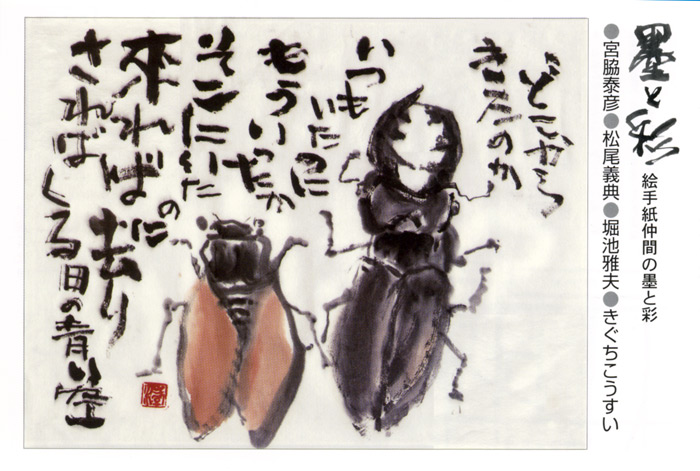 墨と彩
絵手紙仲間の墨と彩
●宮脇泰彦●松尾義典●堀池雅夫●きぐちこうすい
どこから
きたのか
いつも
いたのに
もういったか
そこにいた
のに
来れば去り
されば
くる日の青い空